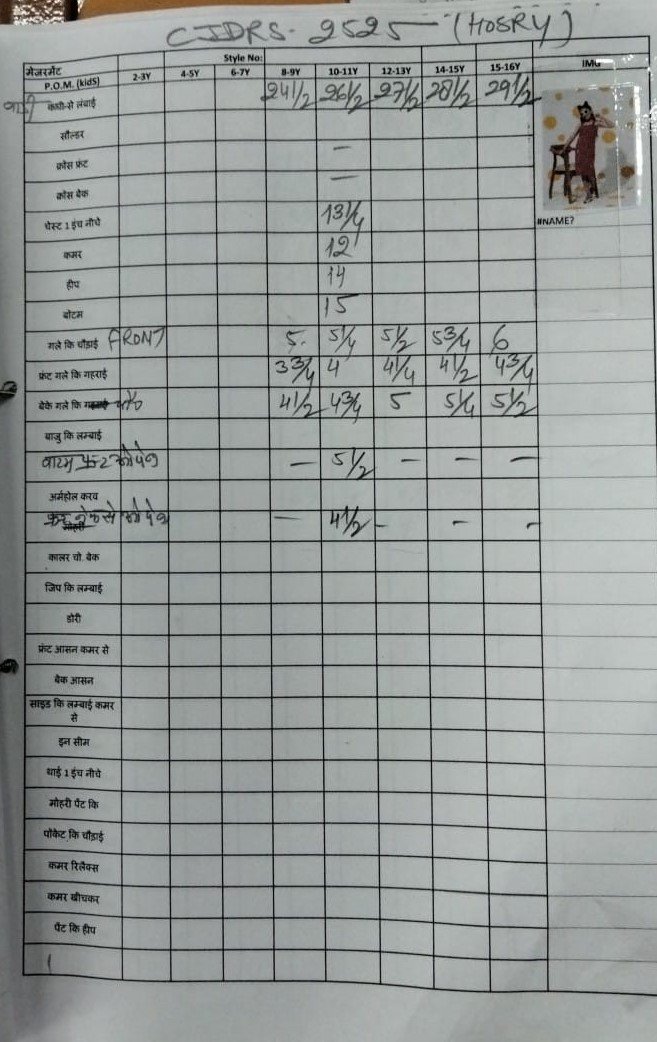 CJDRS-2525 (HOSRY)
Style No:
मेजरमेंट
P.O.M. (kidS) 2-3Y 4-5Y 6-7Y 8-9Y 10-11Y 12-13Y 14-15Y 15-16Y IMG
लंबाई 24½ 26½ 27½ 28½ 29½
सौल्डर
क्रोस फ्रंट —
क्रोस बेक —
चेस्ट 1 इंच नीचे 13¼
कमर 12
हीप 14
बोटम 15
#NAME?
गले कि चौड़ाई FRONT 5. 5¼ 5½ 5¾ 6
फ्रंट गले कि गहराई 3¾ 4 4¼ 4½ 4¾
बेके गले कि 4½ 4¾ 5 5¼ 5½
बाजु कि लम्बाई
— 5½ — — —
अर्महोल करव
— 4½ - - -
कालर चो. बेक
जिप कि लम्बाई
डोरी
फ्रंट आसन कमर से
बेक आसन
साइड कि लम्बाई कमर
से
इन सीम
थाई 1 इंच नीचे
मोहरी पेंट कि
पोकेट कि चौड़ाई
कमर रिलैक्स
कमर खीचकर
पेंट कि हीप